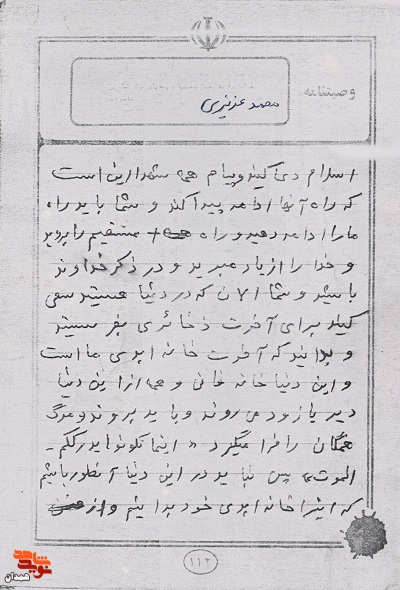 وصیتنامه:
محمد عزیزی
اسلام دعا کنید و پیام همه شهدا این است
که راه آنها ادامه پیدا کند و شما باید راه
ما را ادامه دهید و راه مستقیم را بروید
و خدا را از یاد مبرید و در ذکر خداوند
باشید و شما الان که در دنیا هستید سعی
کنید برای آخرت ذخائری بفرستید
و بدانید که آخرت خانه ابدی ما است
و این دنیا خانه فانی و همه از این دنیا
دیر یا زود می روند و باید بروند و مرگ
همگان را فرا میگیرد « اینما تکونوا یدرککم
الموت» پس نباید در این دنیا آنطور باشیم
که اینرا خانه ابدی خود بدانیم و از
۱۱۲
نوید شاهد